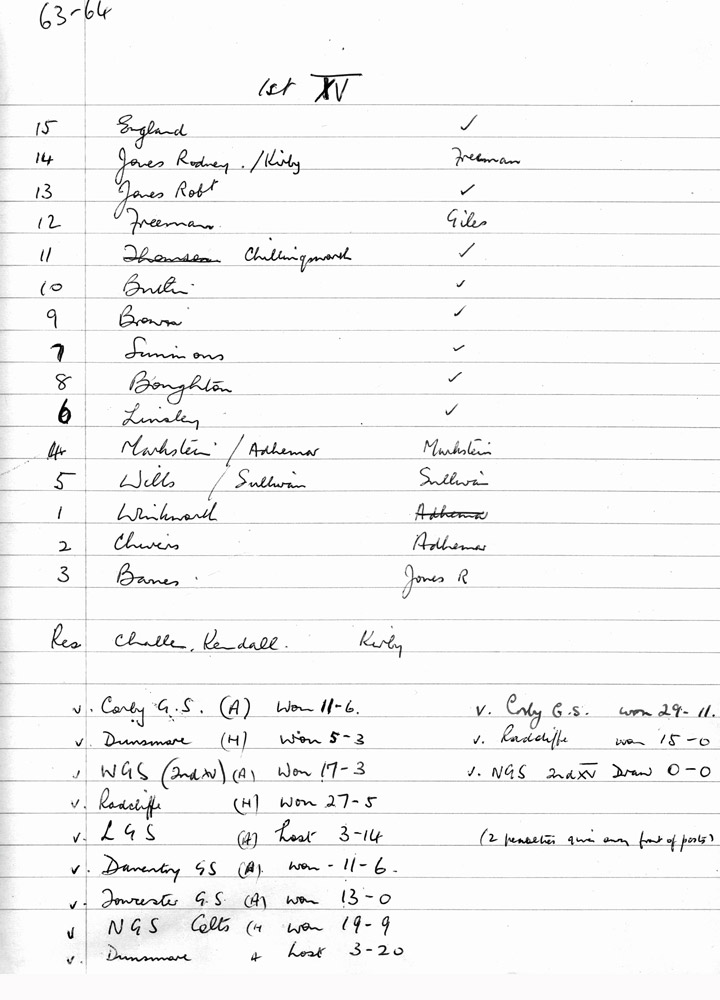 63-64
1st XV
15 England ✓
14 Jones Rodney. / Kirby Freeman
13 Jones Robt ✓
12 Freeman. Giles
11 Thomson Chillingworth ✓
10 ✓
9 Brown ✓
7 Simmons ✓
8 Boughton ✓
6 Linsley ✓
4 Markstein / Adhemar Markstein
5 Wills / Sullivan Sullivan
1 Whinkworth Adhemar
2 Adhemar
3 Barnes. Jones R
Res Challen, Kendall. Kirby
v. Corby G.S. (A) Won 11-6. v. Corby G.S. won 29-11.
v. Dunsmore (H) Won 5-3 v. Radcliffe won 15-0
v WGS (2nd XV) (A) Won 17-3 v. NGS 2nd XV Draw 0-0
v. Radcliffe (H) Won 27-5
v. L G S (A) Lost 3-14 (2 penalties given away front of posts)
v. Daventry GS (A). won - 11-6.
v. Towcester G.S. (A) won 13-0
v NGS Colts (H won 19-9
v. Dunsmore A Lost 3-20